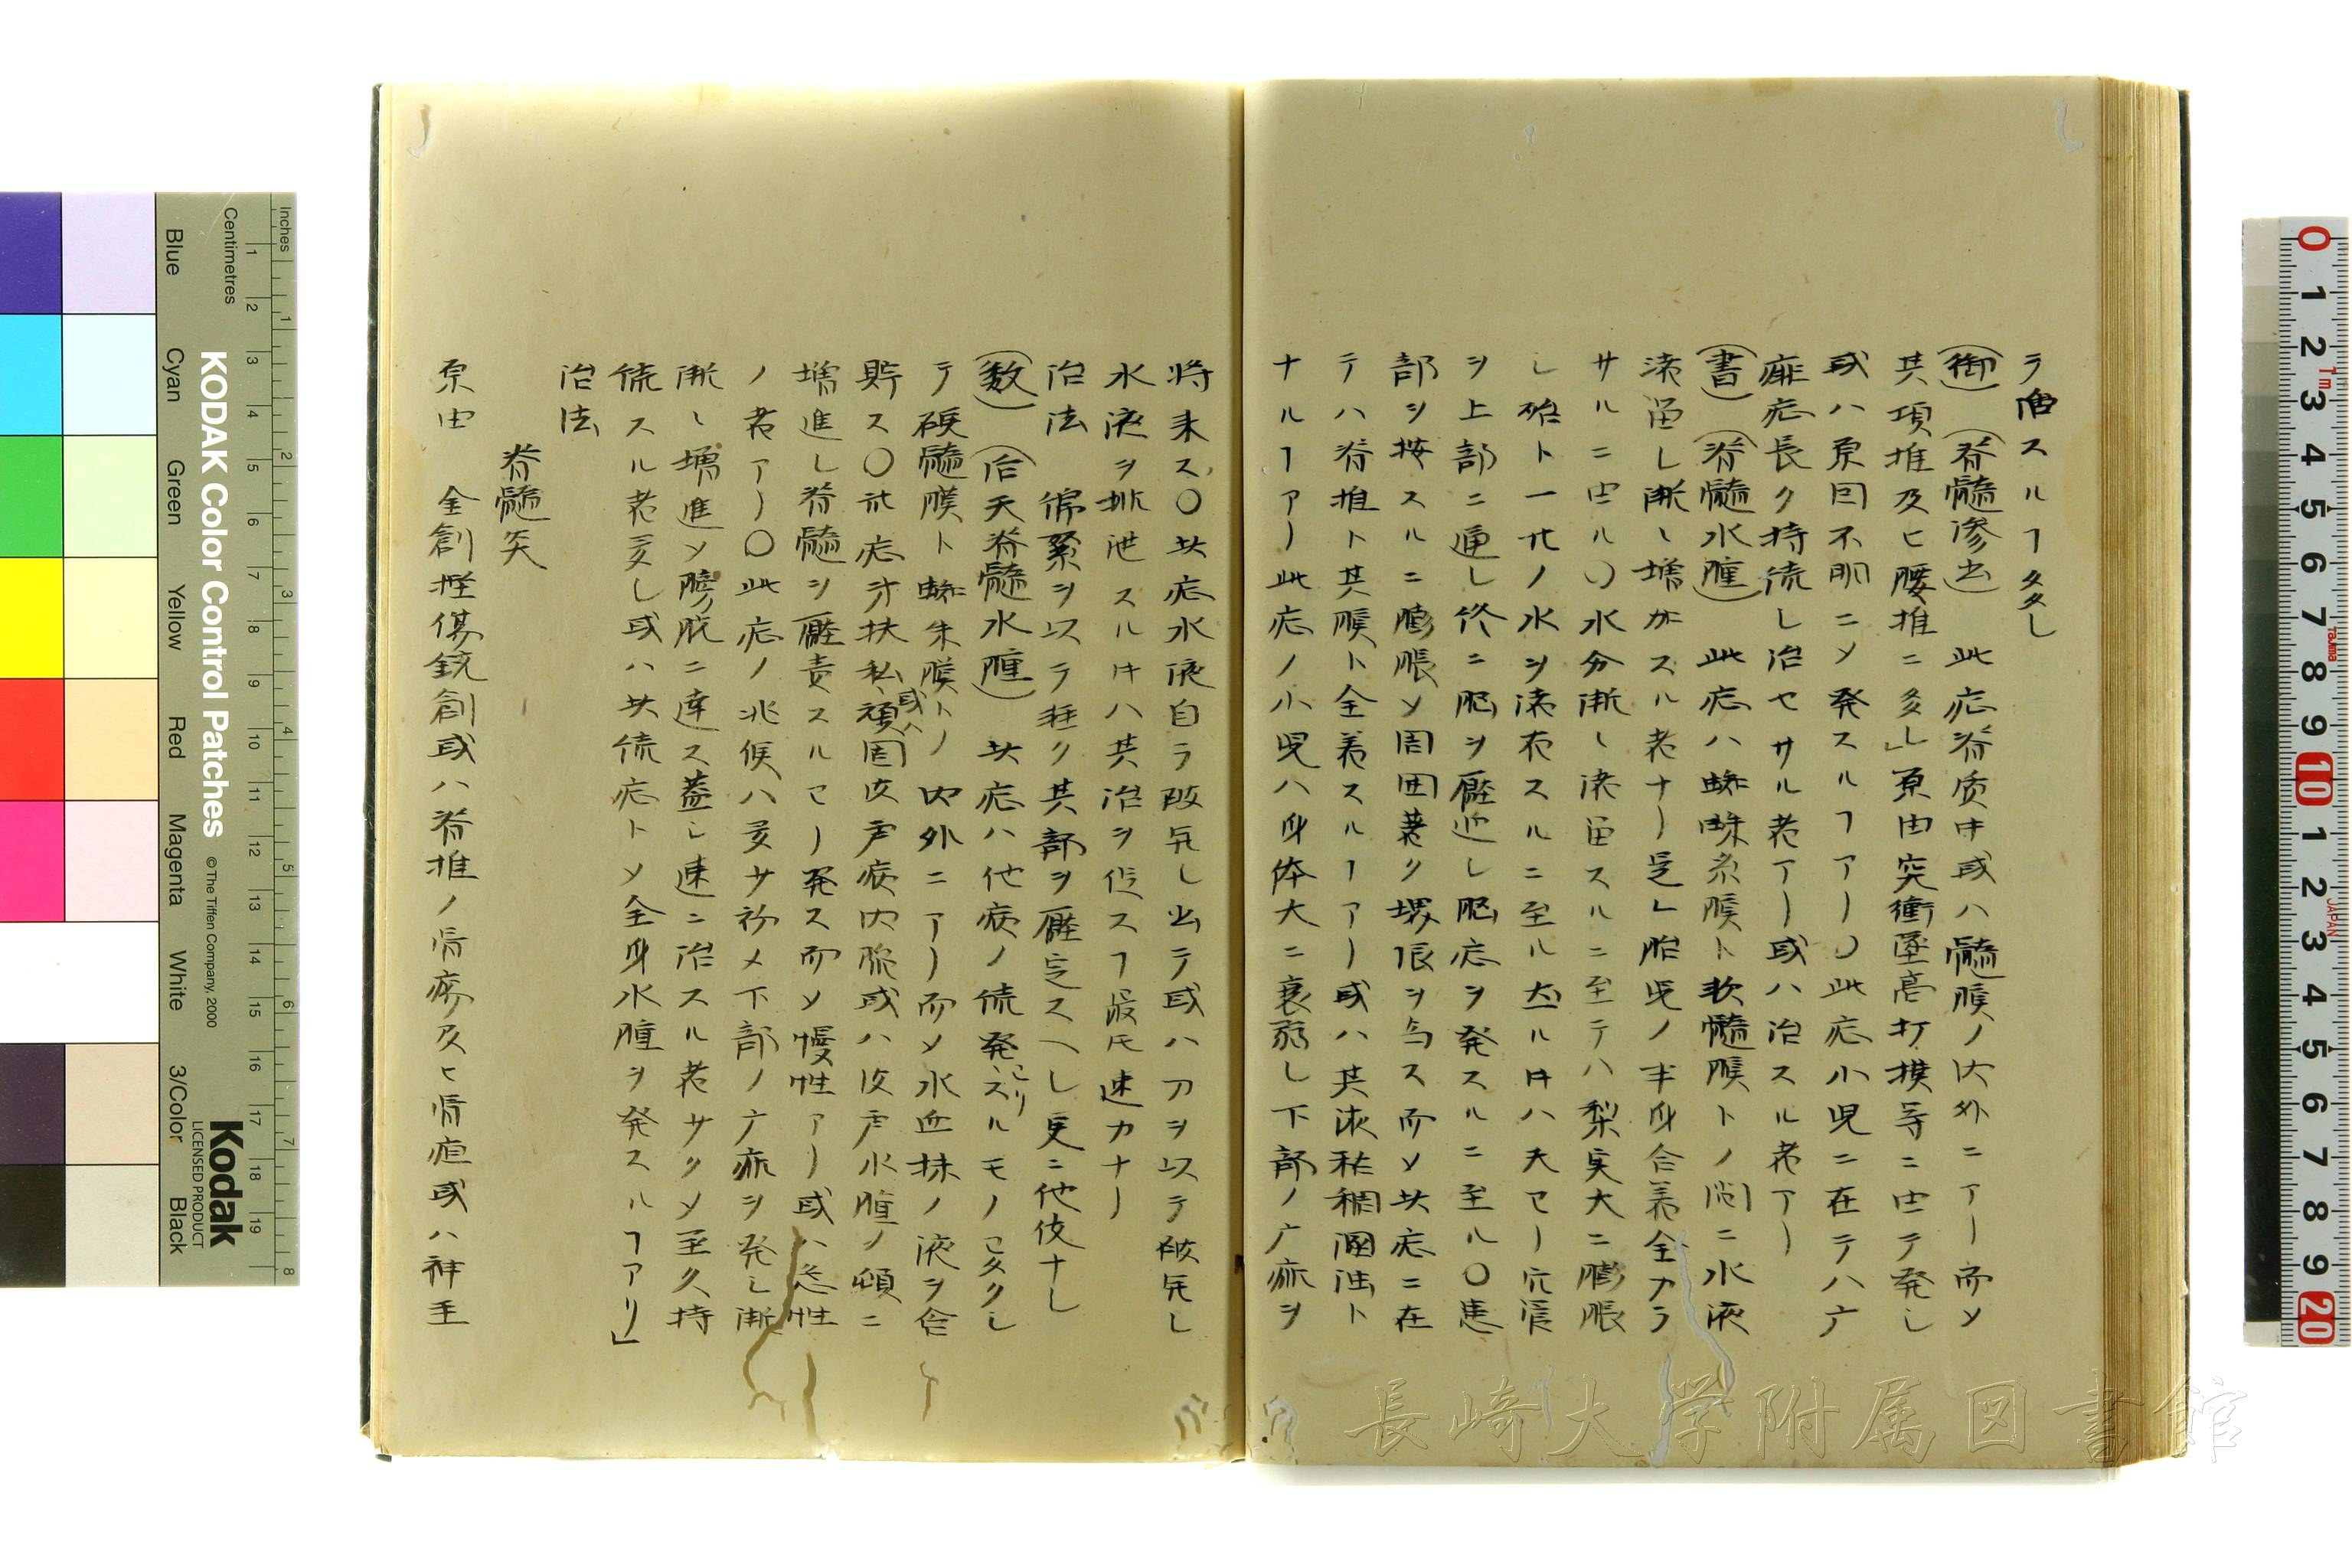 ラ宿スルヿ多シ
（御）（脊髓滲出）　此症脊质中或ハ髓膜ノ内外ニアリ而〆
其項推及ヒ腰推ニ多シ」原由突衝墜高打撲等ニ由テ発シ
或ハ原因不明ニ〆発スルヿアリ〇此症小児ニ在テハ广
痱症長ク持続シ治セサル者アリ或ハ治スル者アリ
（書）（脊髓水腫）　此症ハ蜘蛛糸膜ト軟髓膜トノ间ニ水液
潴畄シ漸〻増加スル者ナリ是レ胎児ノ半身合着全カラ
サルニ由ル〇水分漸〻潴畄スルニ至テハ梨実大ニ膨脹
シ殆ト一
ヲ上部ニ逼シ終ニ脳ヲ壓迫シ脳症ヲ発スルニ至ル〇患
部ヲ按スルニ膨脹〆周囲著ク堺
テハ脊推ト其膜ト全着スルヿアリ或ハ其液粘稠溷浊ト
ナルヿアリ此症ノ小児ハ身体大ニ衰弱シ下部ノ广痱ヲ
将来ス〇此症水液自ラ破先シ出テ或ハ刀ヲ以テ破先シ
水液ヲ排泄スル片ハ其治ヲ促スヿ最モ速カナリ
治法　偏緊ヲ以テ軽ク其部ヲ壓定スヘシ更ニ他伎ナシ
（数）（后天脊髓水腫）　此症ハ他病ノ続発スルモノ多クシ
テ硬髓膜ト蜘朱膜トノ内外ニアリ而〆水血抹ノ液ヲ含
貯ス〇
増進シ脊髓ヲ壓责スルヿリ発ス而〆慢性アリ或ハ急性
ノ者アリ〇此症ノ兆候ハ多サ初メ下部ノ广痱ヲ発シ漸
漸〻増進〆膀胱ニ達ス蓋シ速ニ治スル者サク〆至久持
続スル者多シ或ハ此続症ト〆全身水腫ヲ発スルヿアリ」
治法
脊髓炎
原由　金創挫傷銃創或ハ脊推ノ骨瘍及ヒ骨疽或ハ神圣
Inches
Centimetres
KODAK Color Control Patches
© The Tiffen Company, 2000
Blue
Cyan
Green
Yellow
Red
Magenta
White
3/Color
Black
Kodak
LICENSED PRODUCT
JAPAN
長崎大学附属図書館